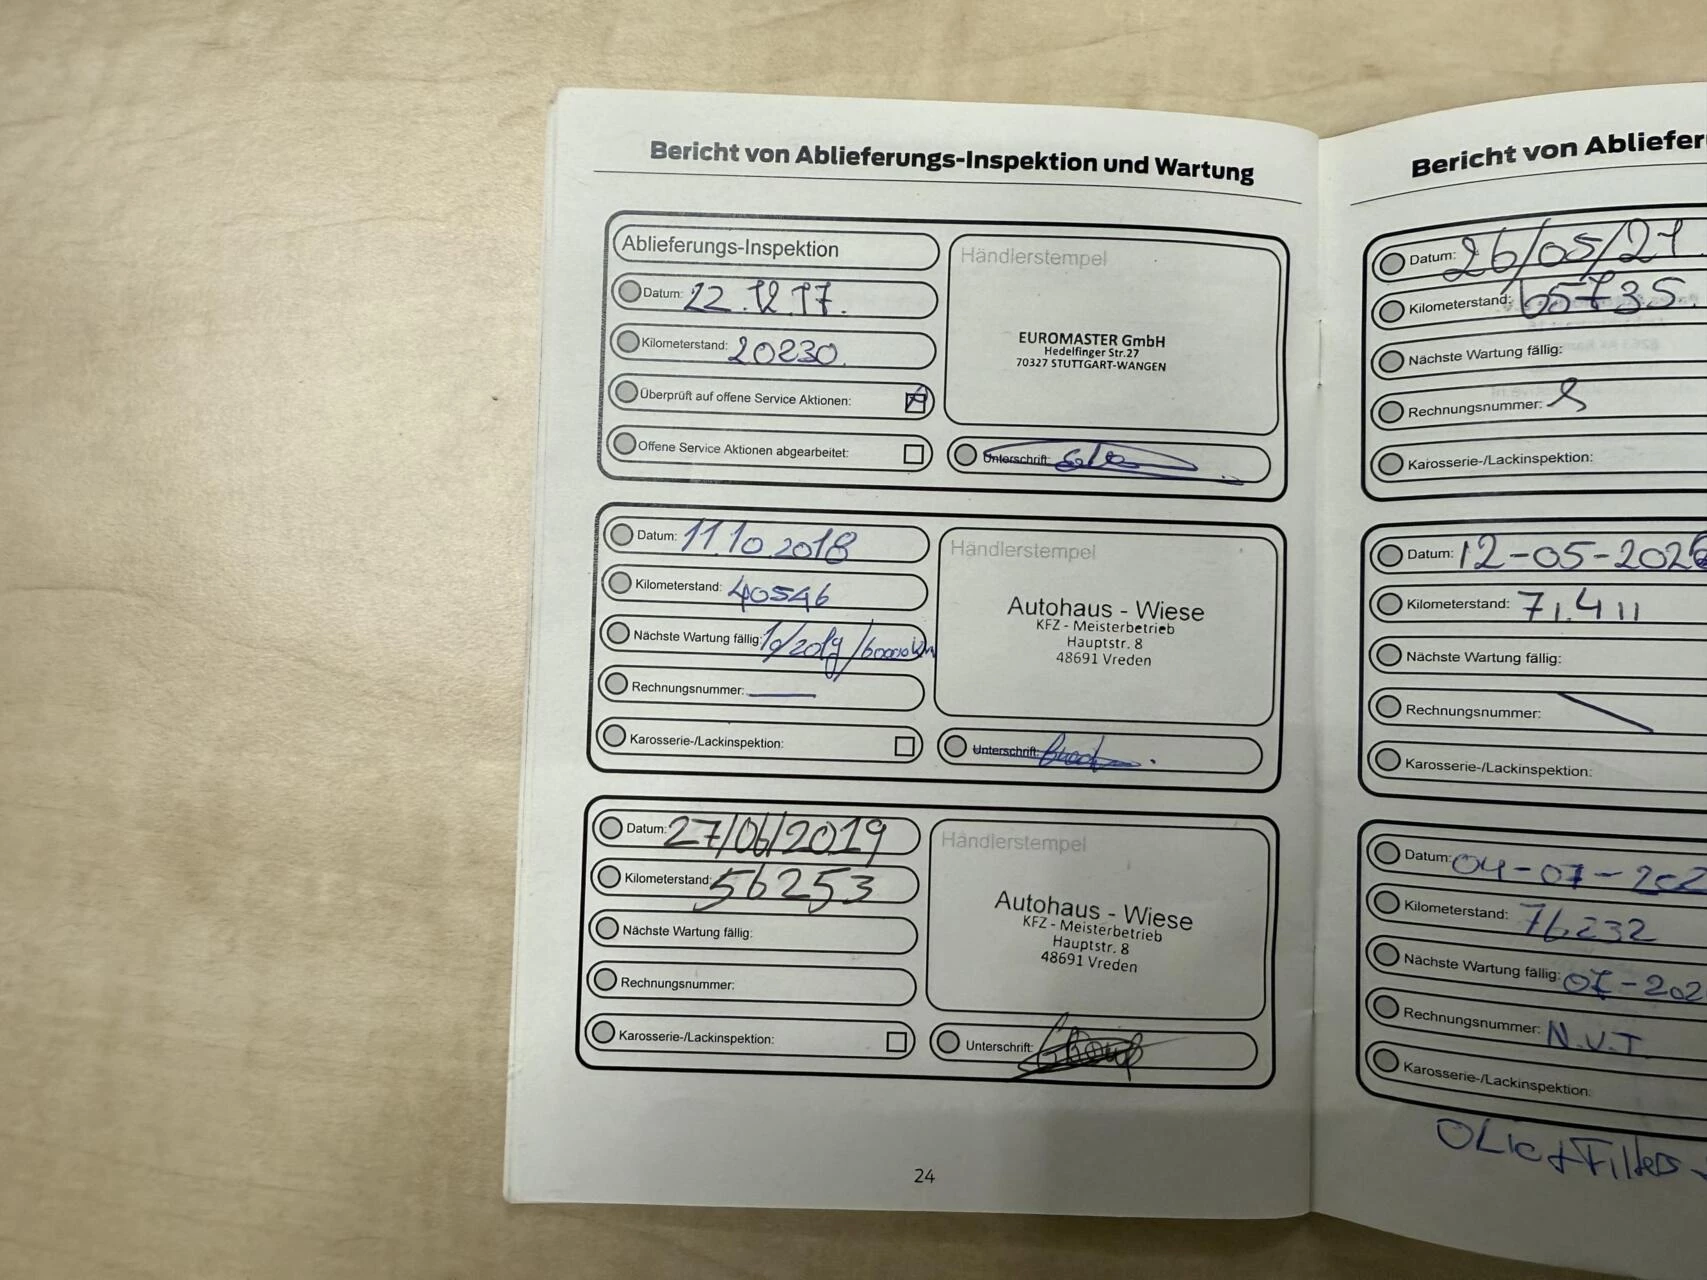 Bericht von Ablieferungs-Inspektion und Wartung
Ablieferungs-Inspektion
Datum: 22.12.17.
Kilometerstand: 20230.
Überprüft auf offene Service Aktionen:
Offene Service Aktionen abgearbeitet:
Händlerstempel
EUROMASTER GmbH
Hedelfinger Str.27
70327 STUTTGART-WANGEN
Unterschrift:
Datum: 11.10.2018
Kilometerstand: 40546
Nächste Wartung fällig: 10/2019/60000 km
Rechnungsnummer:
Karosserie-/Lackinspektion:
Händlerstempel
Autohaus - Wiese
KFZ - Meisterbetrieb
Hauptstr. 8
48691 Vreden
Unterschrift:
Datum: 27/06/2019
Kilometerstand: 56253
Nächste Wartung fällig:
Rechnungsnummer:
Karosserie-/Lackinspektion:
Händlerstempel
Autohaus - Wiese
KFZ - Meisterbetrieb
Hauptstr. 8
48691 Vreden
Unterschrift:
24
Bericht von Abliefer
Datum: 26/05/21.
Kilometerstand: 65735.
Nächste Wartung fällig:
Rechnungsnummer:
Karosserie-/Lackinspektion:
Datum: 12-05-202
Kilometerstand: 71.411
Nächste Wartung fällig:
Rechnungsnummer:
Karosserie-/Lackinspektion:
Datum: 04-07-202
Kilometerstand: 76.232
Nächste Wartung fällig: 07-202
Rechnungsnummer: N.V.T.
Karosserie-/Lackinspektion:
OLie + Filters